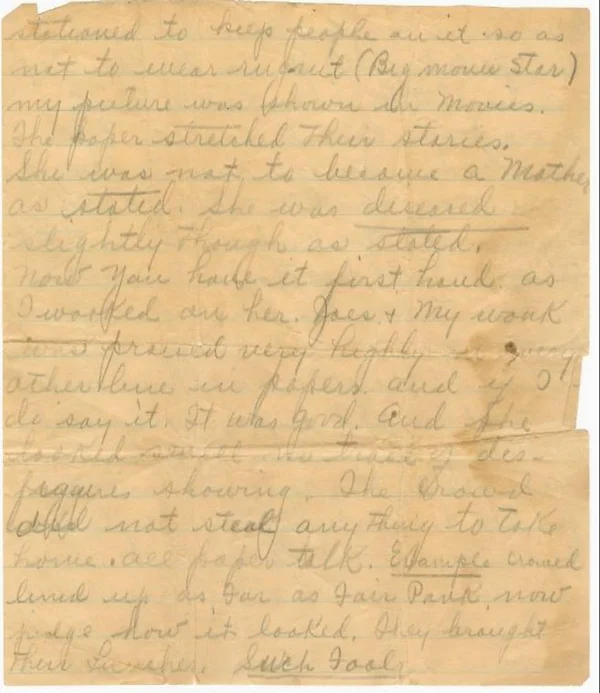 stationed to keep people on it so as
not to wear rug out (Big movie Star)
my picture was shown in Movies.
The paper stretched Their stories.
She was not to become a Mother
as stated. She was diseased
slightly though as stated.
Now You have it first hand. as
I worked on her. Joes & My work
was praised very highly
other line in papers. and if I
do say it. It was Good. And she
looked swell no trace of dis-
figgures showing. The Crowd
did not steal any Thing to Take
home. all paper talk. Example crowd
lined up as Far as Fair Park, now
judge how it looked. They brought
Their Lunches. Such Fools